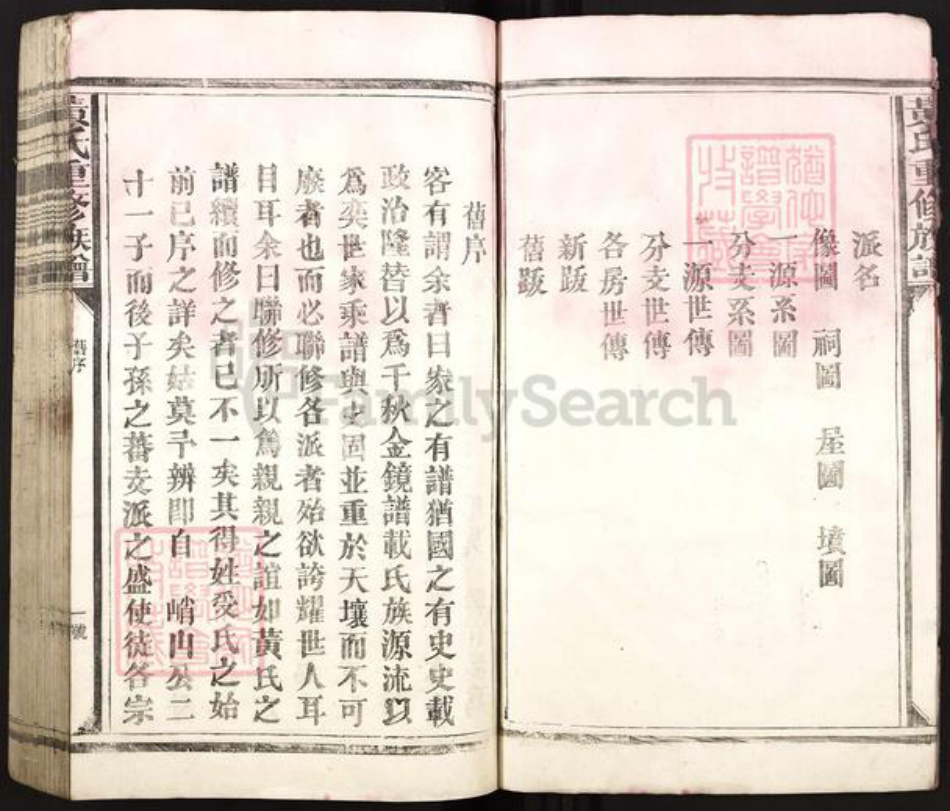 黃氏重修族譜
派名
像圖 祠圖 屋圖 墳圖
一源系圖
分支系圖
一源世傳
分支世傳
各房世傳
新跋
舊跋
舊序
客有謂余者曰家之有譜猶國之有史史載
政治隆替以爲千秋金鏡譜載氏族源流以
爲奕世家乘譜與史固並重於天壤而不可
廢者也而必聯修各派者殆欲誇耀世人耳
目耳余曰聯修所以爲親親之誼如黃氏之
譜續而修之者已不一矣其得姓受氏之始
前已序之詳矣姑莫予辨卽自 峭山公二
十一子而後子孫之蕃支派之盛使徒各宗
黃氏重修族譜
舊序
一號
FamilySearch